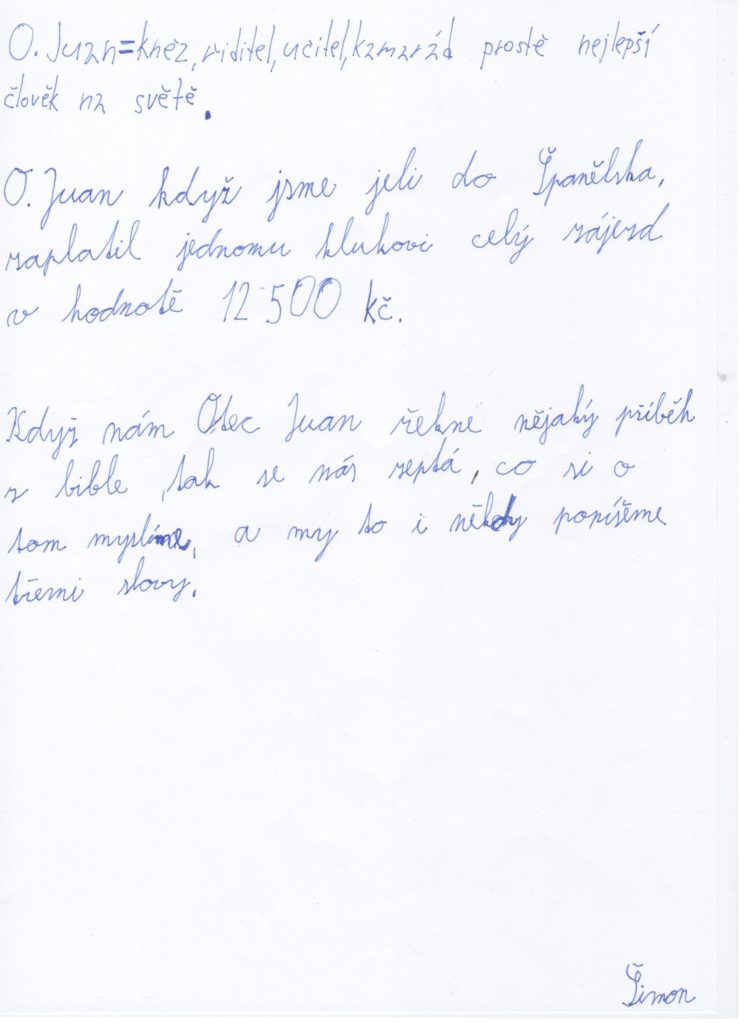 O. Juan=kněz, riditel, učitel, kamarád prostě nejlepší
člověk na světě.
O. Juan když jsme jeli do Španělska,
zaplatil jednomu klukovi celý zájezd
v hodnotě 12 500 kč.
Když nám Otec Juan řekne nějaký příběh
z bible, tak se nás zeptá, co si o
tom myslíme, a my to i někdy popíšeme
třemi slovy.
Šimon